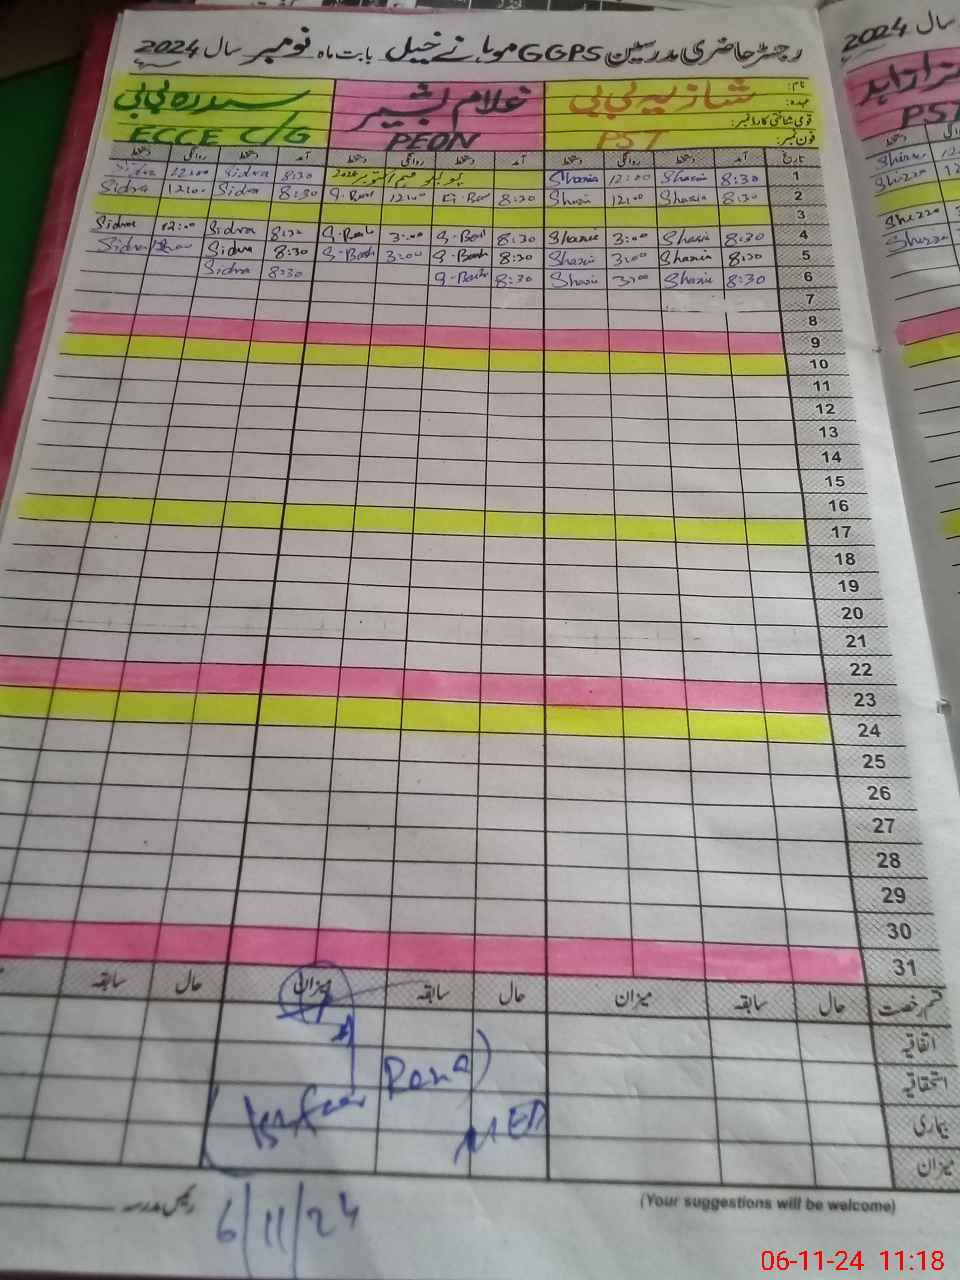 رجسٹر حاضری مدرسین GGPS موہانے خیل بابت ماہ نومبر سال 2024
سال 2024
نام: شازیہ بی بی غلام بشیر سدرہ بی بی
عہدہ:
قومی شناختی کارڈ نمبر:
فون نمبر: PST PEON ECCE C/G
PST
تاریخ آمد دستخط روانگی دستخط آمد دستخط روانگی دستخط آمد دستخط روانگی دستخط
1 8:30 Shazia 12:00 Shazia 8:30 Sidra 12:00 Sidra
2 8:30 Shazia 12:00 Shazia 8:30 12:00 8:30 Sidra 12:00 Sidra
3
4 8:30 Shazia 3:00 Shazia 8:30 G-Bash 3:00 G-Bash 8:30 Sidra 12:00 Sidra
5 8:30 Shazia 3:00 Shazia 8:30 G-Bash 3:00 G-Bash 8:30 Sidra
6 8:30 Shazia 3:00 Shazia 8:30 G-Bash 8:30 Sidra
7
8
9
10
11
12
13
14
15
16
17
18
19
20
21
22
23
24
25
26
27
28
29
30
31
قسم رخصت حال سابقہ میزان حال سابقہ میزان حال سابقہ
اتفاقیہ
استحقاقیہ
بیماری
میزان
Rana)
MEA
رئیس مدرسہ
6/11/24
(Your suggestions will be welcome)
06-11-24 11:18